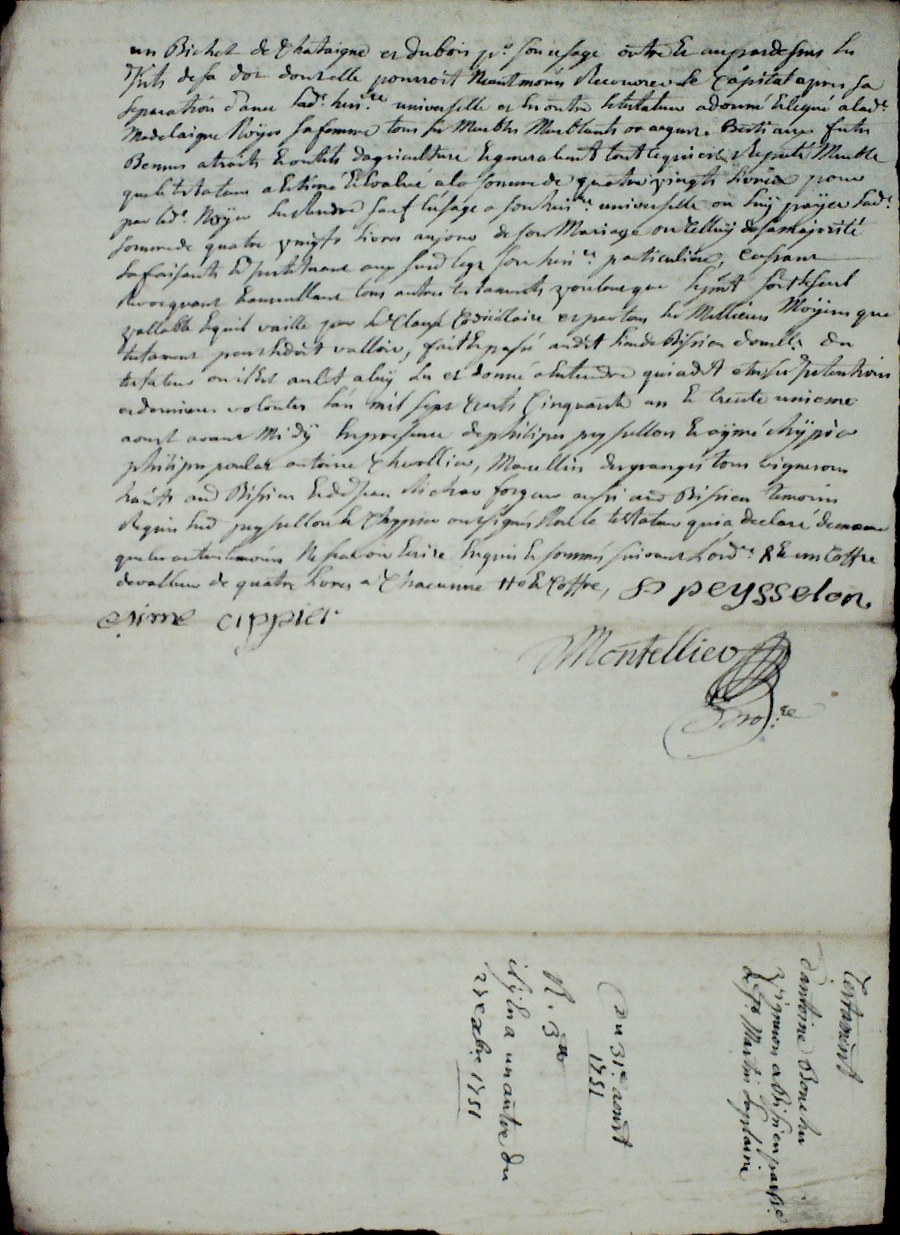 un Bichet de Chataigne et du bois pr. son usage outre et au pardessus les
fruits de sa dot dont elle pourroit Neantmoins Recouvrer le Capital apres sa
separation d'avec sad. heri.re universelle et en outre le testateur a donné et legué a lad.e
Madelaigne sa femme tous ses Meubles Meublants or argent Bestiaux futs
Bennes outils d'agriculture et generalement tout ce qui est Reputé Meuble
que le testateur a Estimé Et Evalué a la somme de quatre vingts livres pour
par lad. sauf l'usage a son heri.re universelle ou luy payer lad.e
somme de quatre vingts livres au jour de son Mariage ou celluy de sa majorité
La faisants Et instituant aux susd legs son heri.re particuliere, Cassant
Revocquant Et annullant tous autres testaments voulant que le pnt soit le seul
vallable Et quil vaille par dt Clause Codicillaire et par tous les Meilleurs Moÿens que
testament peut et doit valloir, fait Et passé audit lieu de Bissieu domille du
testateur ou il Est au lit a luy Lu et donné a Entendre qui a dit etre ses Intentions
et dernieres volontes L'an mil sept Cents Cinquante un Et le trente unieme
aoust avant Midÿ En presence de philipes peyssellon Et aÿmé chÿpier
philipes antoine Chevallier, Marcellin desgranges tous vignerons
hants aud Bissieu Et forgeur aussi aud Bissieu temoins
Requis Lesd peyssellon Et Chyppier ont signés Non le testateur qui a declaré de meme
que les autres temoins Ne scavoir Ecrire Enquis Et sommés suivant L'ord.e & Et un Coffre
de valleur de quatre livres a Chacunne Et Coffre, P peysselon
esime cippier
Montellier
No.re
Testament
d'antoine
vigneron a Bissieu parsse
de St Martin
Du 31e aoust
1751
N. 3
il y en a un autre du
xbre 1751